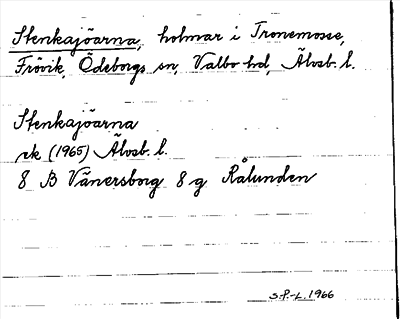 Stenkajöarna, holmar i Tronemosse,
Frövik, Ödeborgs sn, Valbo hd, Älvsb. l.
Stenkajöarna
ek (1965) Älvsb. l.
8 B Vänersborg 8 g Rålunden
S.P.-L. 1966